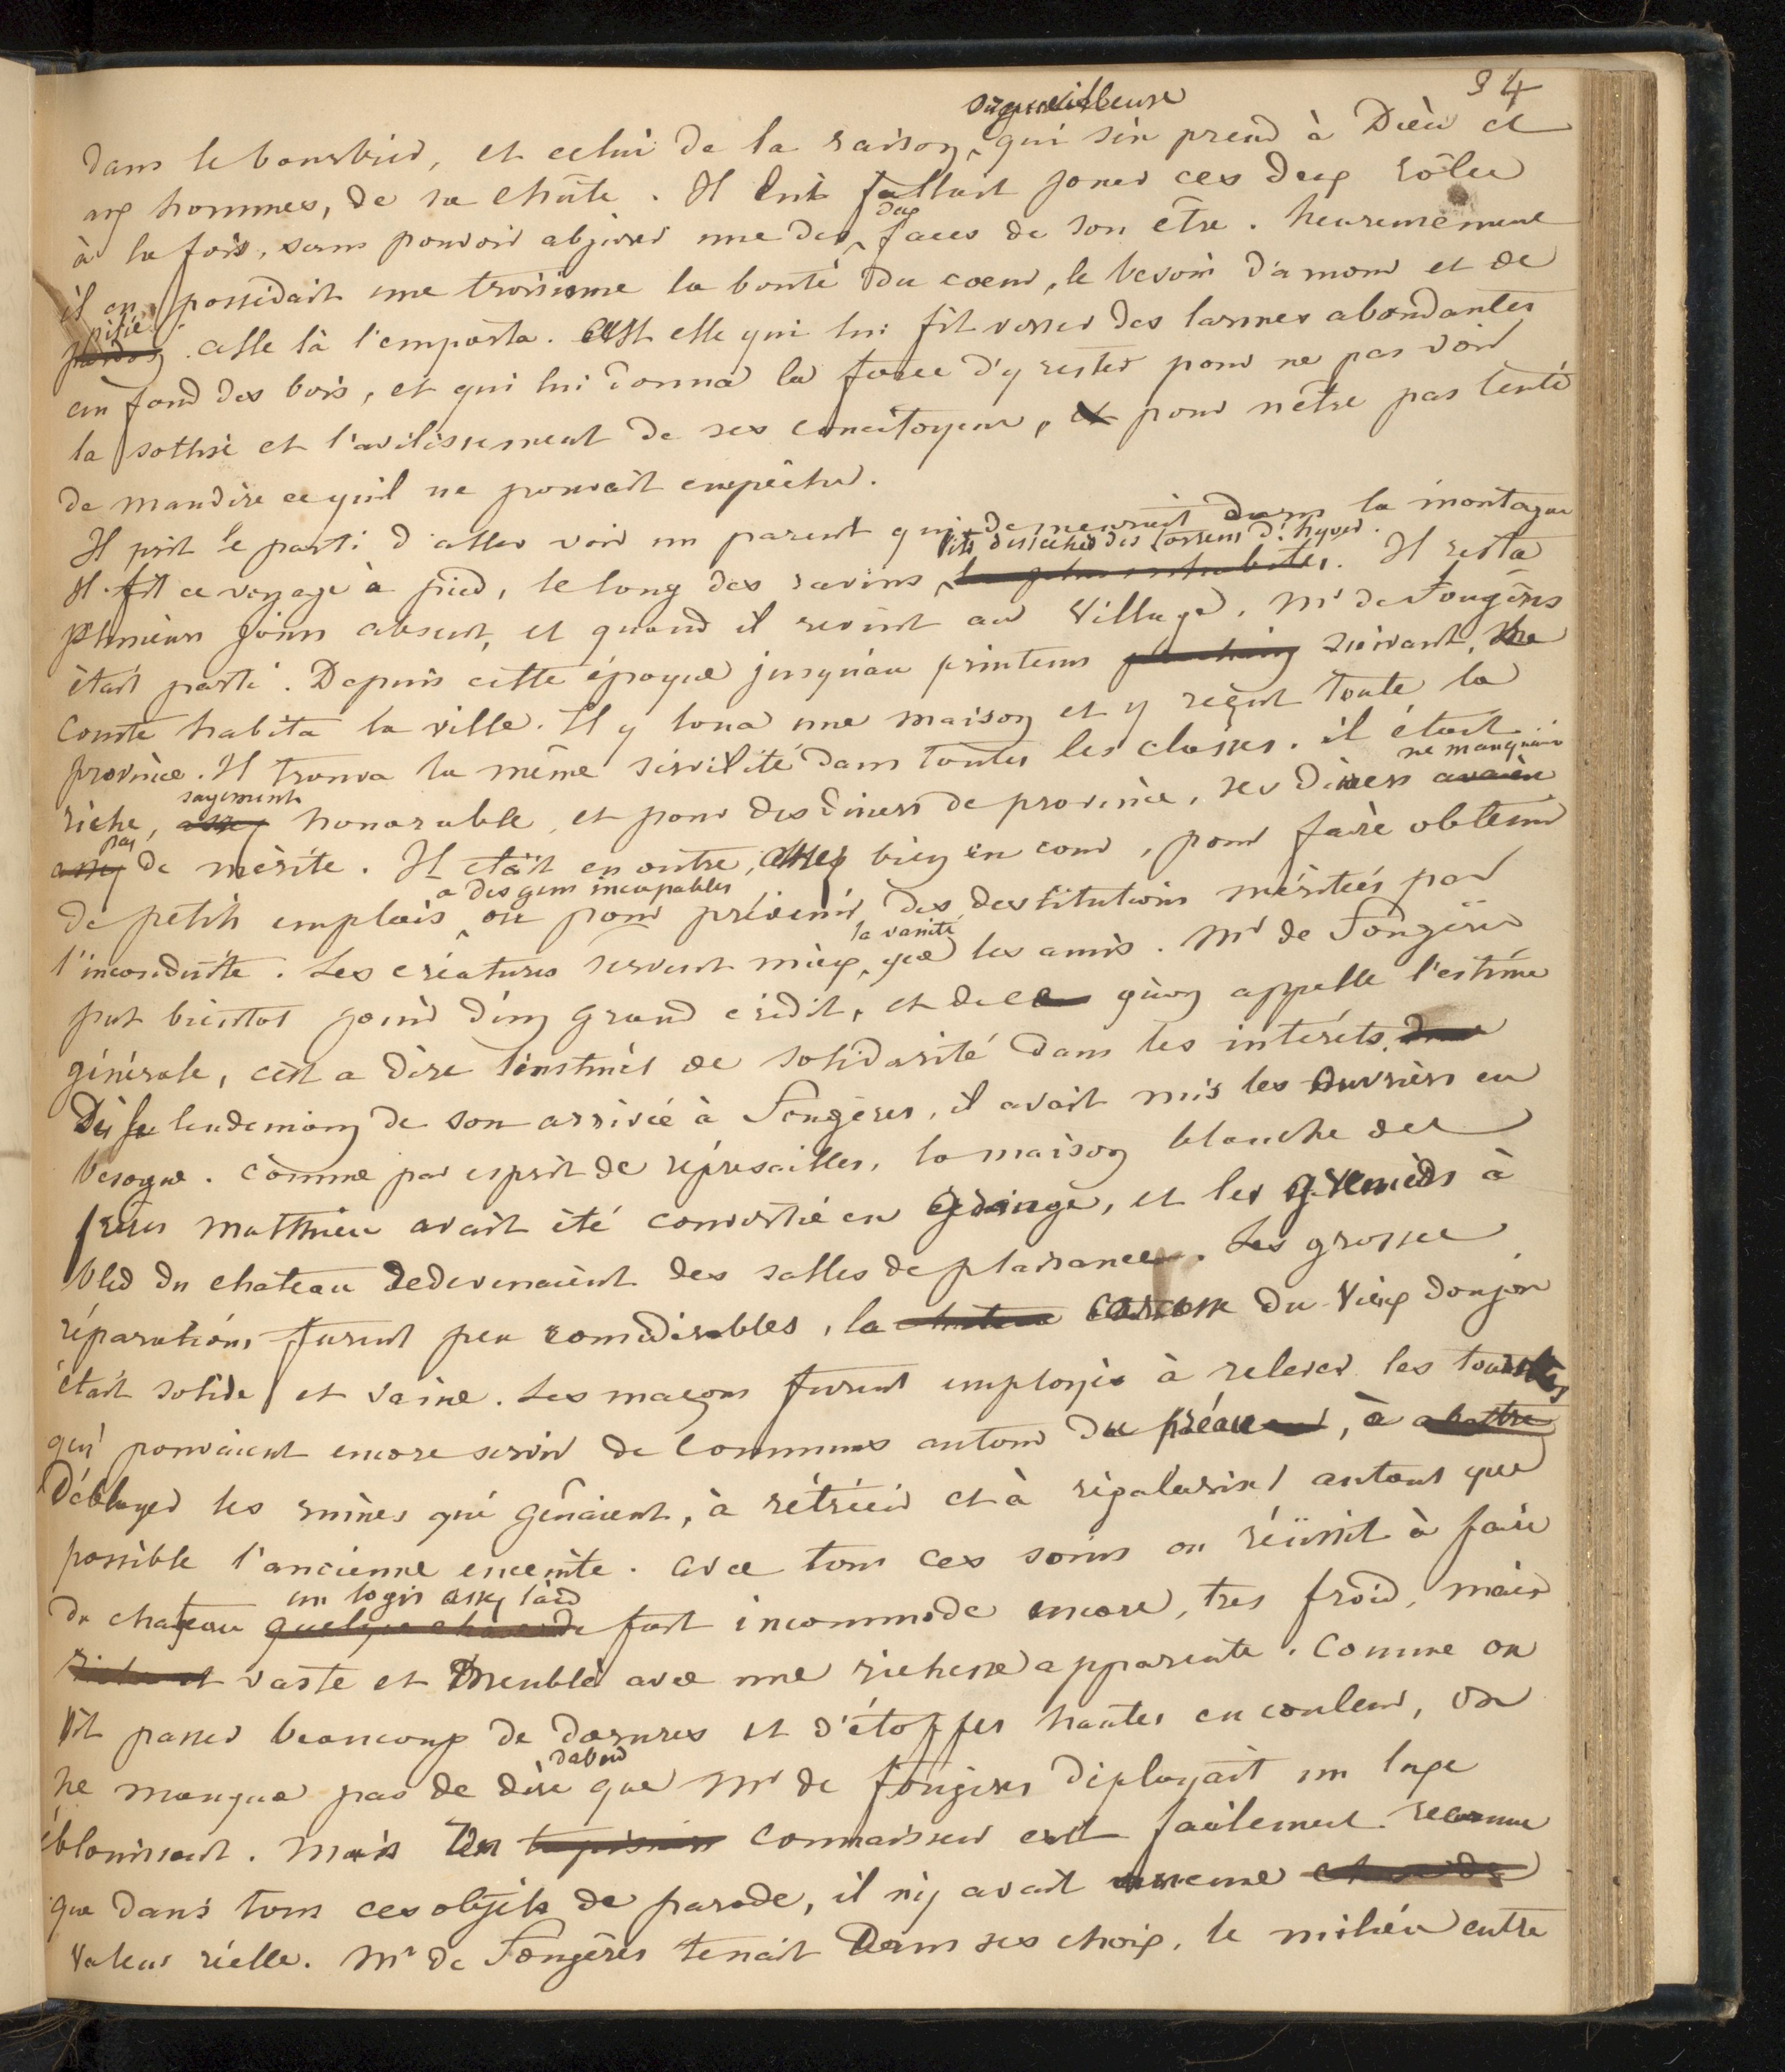 34
orgueilleuse
dans le bourbier, et celui de la raison qui s'en prend à Dieu et
aux hommes, de sa chûte. Il lui fallait jouer ces deux rôles
deux
à la fois, sans pouvoir abjurer une des faces de son être. heureusement
il en possédait une troisieme la bonté du coeur, le besoin d'amour et de
pitié
pardon. celle là l'emporta. C'est elle qui lui fit verser des larmes abondantes
au fond des bois, et qui lui donna la force d'y rester pour ne pas voir
la sottise et l'avilissement de ses concitoyens, et pour n'être pas tenté
de maudire ce qu'il ne pouvait empêcher.
Il prit le parti d'aller voir un parent qui demeurait dans la montagne
lits desséchés des torrens d'hyver.
Il fit ce voyage à pied, le long des ravins les plus inhabités. Il resta
plusieurs jours absent, et quand il revint au village, Mr de Fougères
était parti. Depuis cette époque jusqu'au printems prochain suivant, le
comte habita la ville. Il y loua une maison et y reçut toute la
province. Il trouva la même servilité dans toutes les classes. il était
ne manquaient
sagement
riche, assez honorable, et pour des diners de province, ses diners avaient
pas
assez de mérite. Il était en outre, assez bien en cour, pour faire obtenir
a des gens incapables
de petits emplois ou pour prévenir des destitutions méritées par
la vanité
l'inconduite. Les créatures servent mieux que les amis. Mr de Fougères
put bientot jouir d'un grand crédit, et de ce qu'on appelle l'estime
générale, c'est a dire l'instinct de solidarité dans les intérêts.
Dès le lendemain de son arrivée à Fougères, il avait mis les ouvriers en
besogne. Comme par esprit de représailles, la maison blanche des
frères Matthieu avait été convertie en grange, et les greniers à
bled du chateau redevenaient des salles de plaisance. Les grosses
réparations furent peu considérables, la carcasse du vieux donjon
était solide et saine. Les maçons furent employés à relever les tourelles
qui pouvaient encore servir de communs autour du préau, à abattre
Déblayer les ruines qui gênaient, à rétrécir et à régulariser autant que
possible l'ancienne enceinte. avec tous ces soins on réüssit à faire
un logis assez laid
du chateau quelque chose de fort incommode encore, tres froid, mais
riche et vaste et meublé avec une richesse apparente. Comme on
vit passer beaucoup de dorures et d'étoffes hautes en couleur, on
dabord
ne manqua pas de dire que Mr de fougeres déployait un luxe
éblouissant. Mais un tapissier connaisseur eut facilement reconnu
que dans tous ces objets de parade, il n'y avait aucune
valeur réelle. Mr de Fougères tenait dans ses choix, le milieu entre